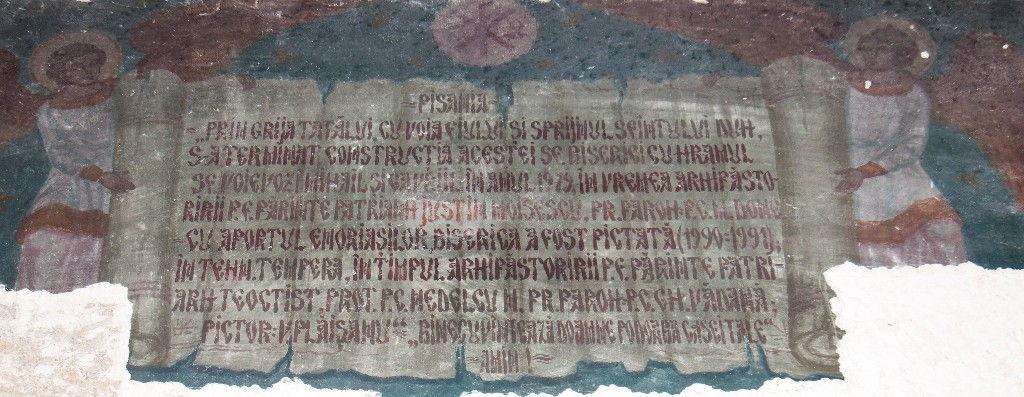 -PISANIA-
„PRIN GRIJA TATĂLUI, CU VOIA FIULUI ȘI SPRIJINUL SFÎNTULUI DUH,
S-A TERMINAT CONSTRUCȚIA ACESTEI SF. BISERICI CU HRAMUL
SF. VOIEVOZI MIHAIL ȘI GAVRIIL, ÎN ANUL 1979, ÎN VREMEA ARHIPĂSTO-
RIRII P.F. PĂRINTE PATRIARH JUSTIN MOISESCU, PR. PAROH P.C. M.
CU APORTUL ENORIAȘILOR, BISERICA A FOST PICTATĂ (1990-1991),
ÎN TEHN. TEMPERA, ÎN TIMPUL ARHIPĂSTORIRII P.F. PĂRINTE PATRI-
ARH TEOCTIST, PROT. P.C. NEDELCU N. PR. PAROH P.C. GH. VĂDANĂ,
PICTOR V. PLĂIȘANU „BINECUVINTEAZĂ DOAMNE PODOABA CASEI TALE"
-AMIN!